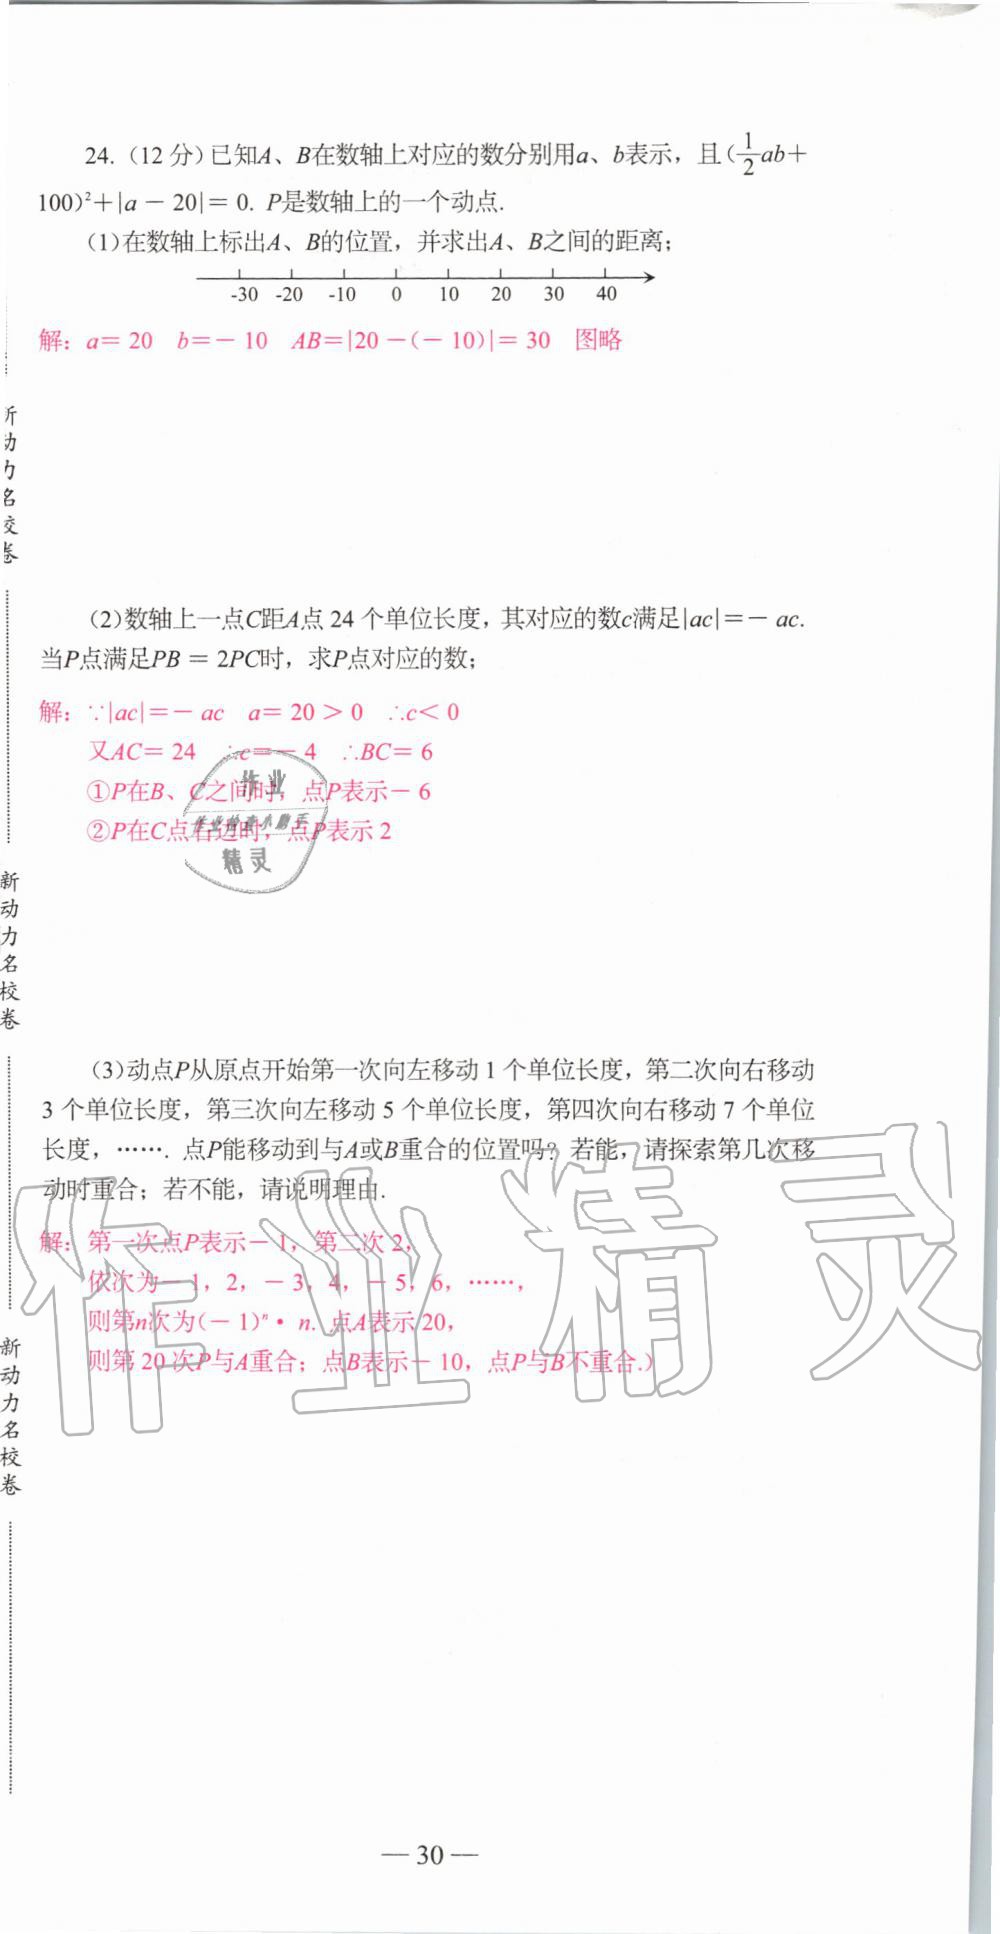 24. (12 分) 已知A、B在数轴上对应的数分别用a、b表示，且(1/2ab+
100)²+|a－20|=0. P是数轴上的一个动点.
(1)在数轴上标出A、B的位置，并求出A、B之间的距离；
-30 -20 -10 0 10 20 30 40
解：a=20 b=－10 AB=|20－(－10)|=30 图略
(2)数轴上一点C距A点 24 个单位长度，其对应的数c满足|ac|=－ac.
当P点满足PB = 2PC时，求P点对应的数；
解：∵|ac|=－ac a=20＞0 ∴c＜0
又AC=24 ∴c=－4 ∴BC=6
①P在B、C之间时，点P表示－6
②P在C点右边时，点P表示 2
(3)动点P从原点开始第一次向左移动 1 个单位长度，第二次向右移动
3 个单位长度，第三次向左移动 5 个单位长度，第四次向右移动 7 个单位
长度，……. 点P能移动到与A或B重合的位置吗？若能，请探索第几次移
动时重合；若不能，请说明理由.
解：第一次点P表示－1，第二次 2，
依次为－1，2，－3，4，－5，6，……，
则第n次为(－1)ⁿ·n. 点A表示 20，
则第 20 次P与A重合；点B表示－10，点P与B不重合.)
— 30 —
新动力名校卷
新动力名校卷
新动力名校卷
作业
作业检查小助手
精灵
作业精灵